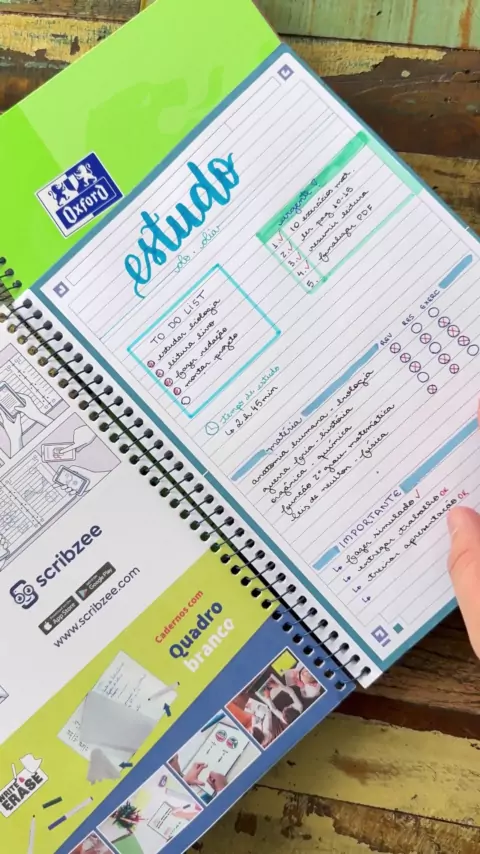 Oxford
estudo
do • dia
urgente
1. ✓ 10 exercícios mat.
2. ✓ ler pag 10-15
3. ✓ resumir leitura
4. ✓ finalizar PDF
5.
TO DO LIST
estudar biologia
leitura livro
fazer redação
montar projeto
tempo de estudo
↳ 2h 45min
matéria REV RES EXERC
anatomia humana • biologia
guerra fria • história
orgânica • química
função 2º grau • matemática
leis de newton • física
IMPORTANTE
↳ fazer simulado ✓
↳ entregar trabalho OK
↳ treinar apresentação OK
↳
scribzee
App Store
Google Play
www.scribzee.com
Cadernos com
Quadro
branco
WRITE &
ERASE